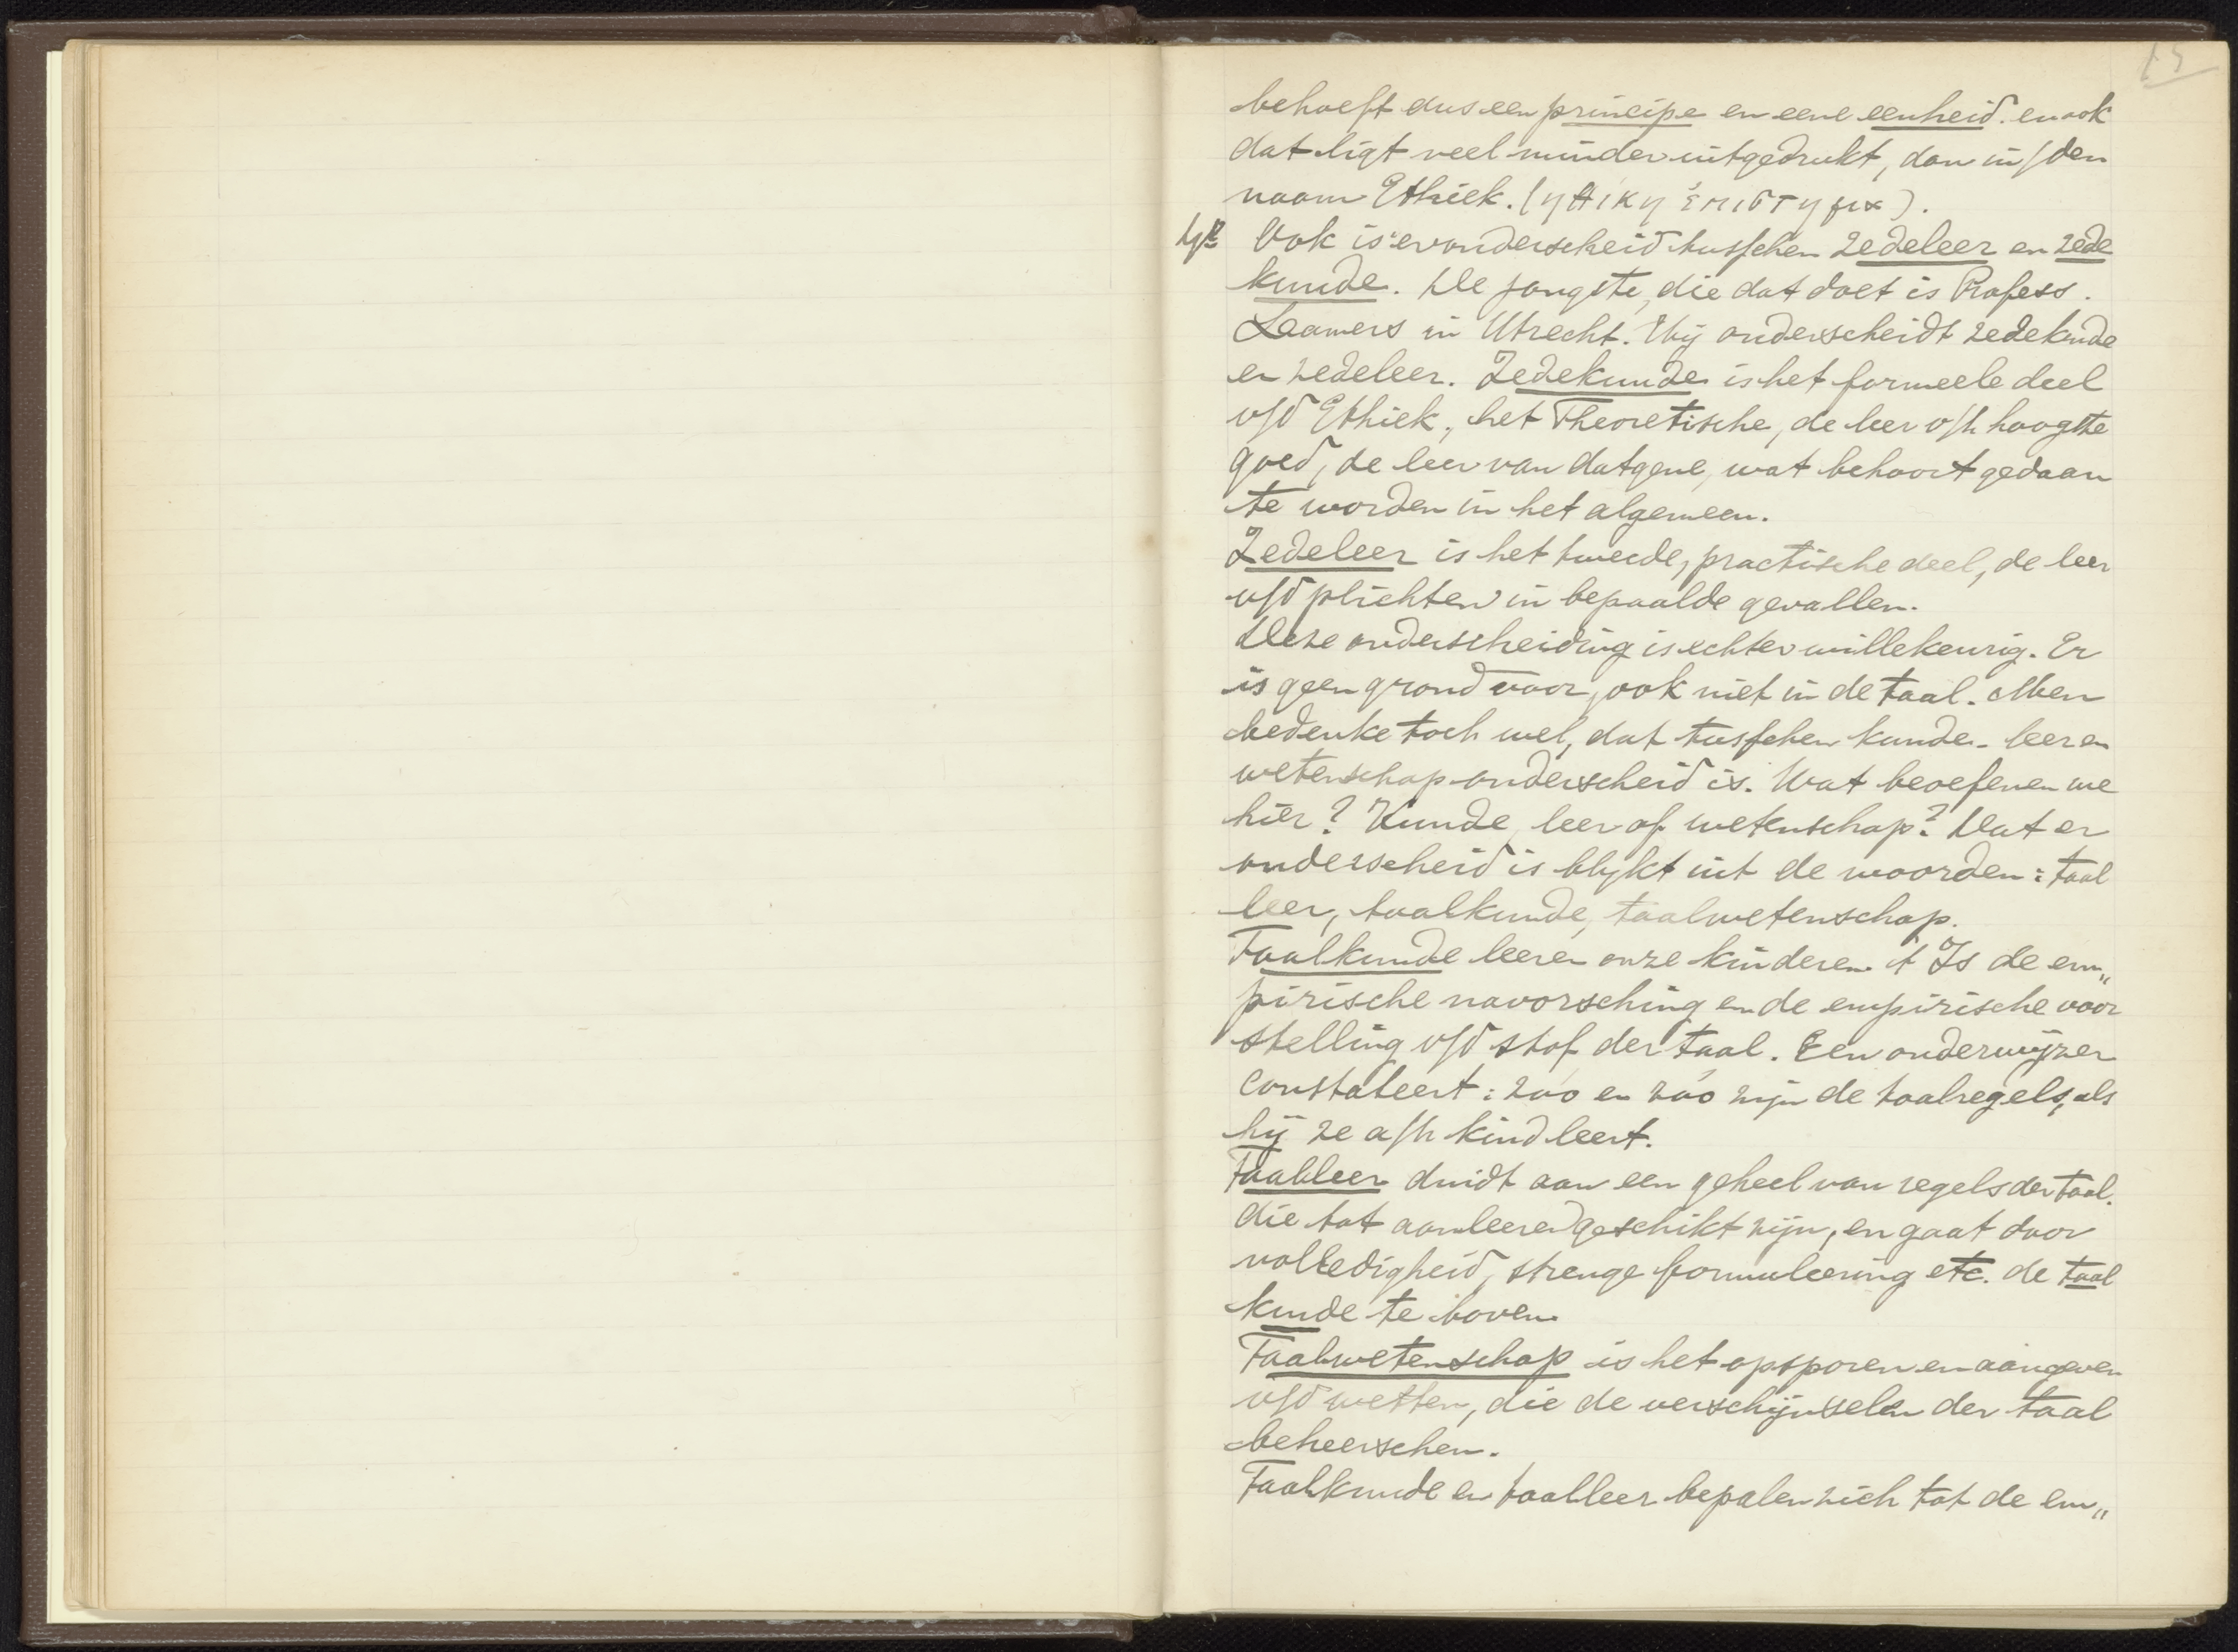 15
behoeft dus een principe en eene eenheid. en ook
dat ligt veel minder uitgedrukt, dan in/den
naam Ethiek. (ηθικη ἐπιστημα).
Ook is er onderscheid tusschen zedeleer en zede
kunde. De jongste, die dat doet is Profess.
Lamers in Utrecht. Hij onderscheidt zedekunde
en zedeleer. Zedekunde is het formeele deel
v/d Ethiek, het Theoretische, de leer v/h hoogste
goed, de leer van datgene, wat behoort gedaan
te worden in het algemeen.
Zedeleer is het tweede, practische deel, de leer
v/d plichten in bepaalde gevallen.
Deze onderscheiding is echter willekeurig. Er
is geen grond voor, ook niet in de taal. Men
bedenke toch wel, dat tusschen kunde- leer en
wetenschap onderscheid is. Wat beoefenen we
hier? Kunde, leer of wetenschap? Dat er
onderscheid is blijkt uit de woorden: taal
leer, taalkunde, taalwetenschap.
Taalkunde leeren onze kinderen. 't Is de em„
pirische navorsching en de empirische voor
stelling v/d stof der taal. Een onderwijzer
constateert: zóó en zóó zijn de taalregels, als
hij ze a/h kind leert.
Taalleer duidt aan een geheel van regels der taal.
die tot aanleeren geschikt zijn, en gaat door
volledigheid, strenge formuleering etc. de taal
kunde te boven.
Taalwetenschap is het opsporen en aangeven
v/d wetten, die de verschijnselen der taal
beheerschen.
Taalkunde en taalleer bepalen zich tot de em„